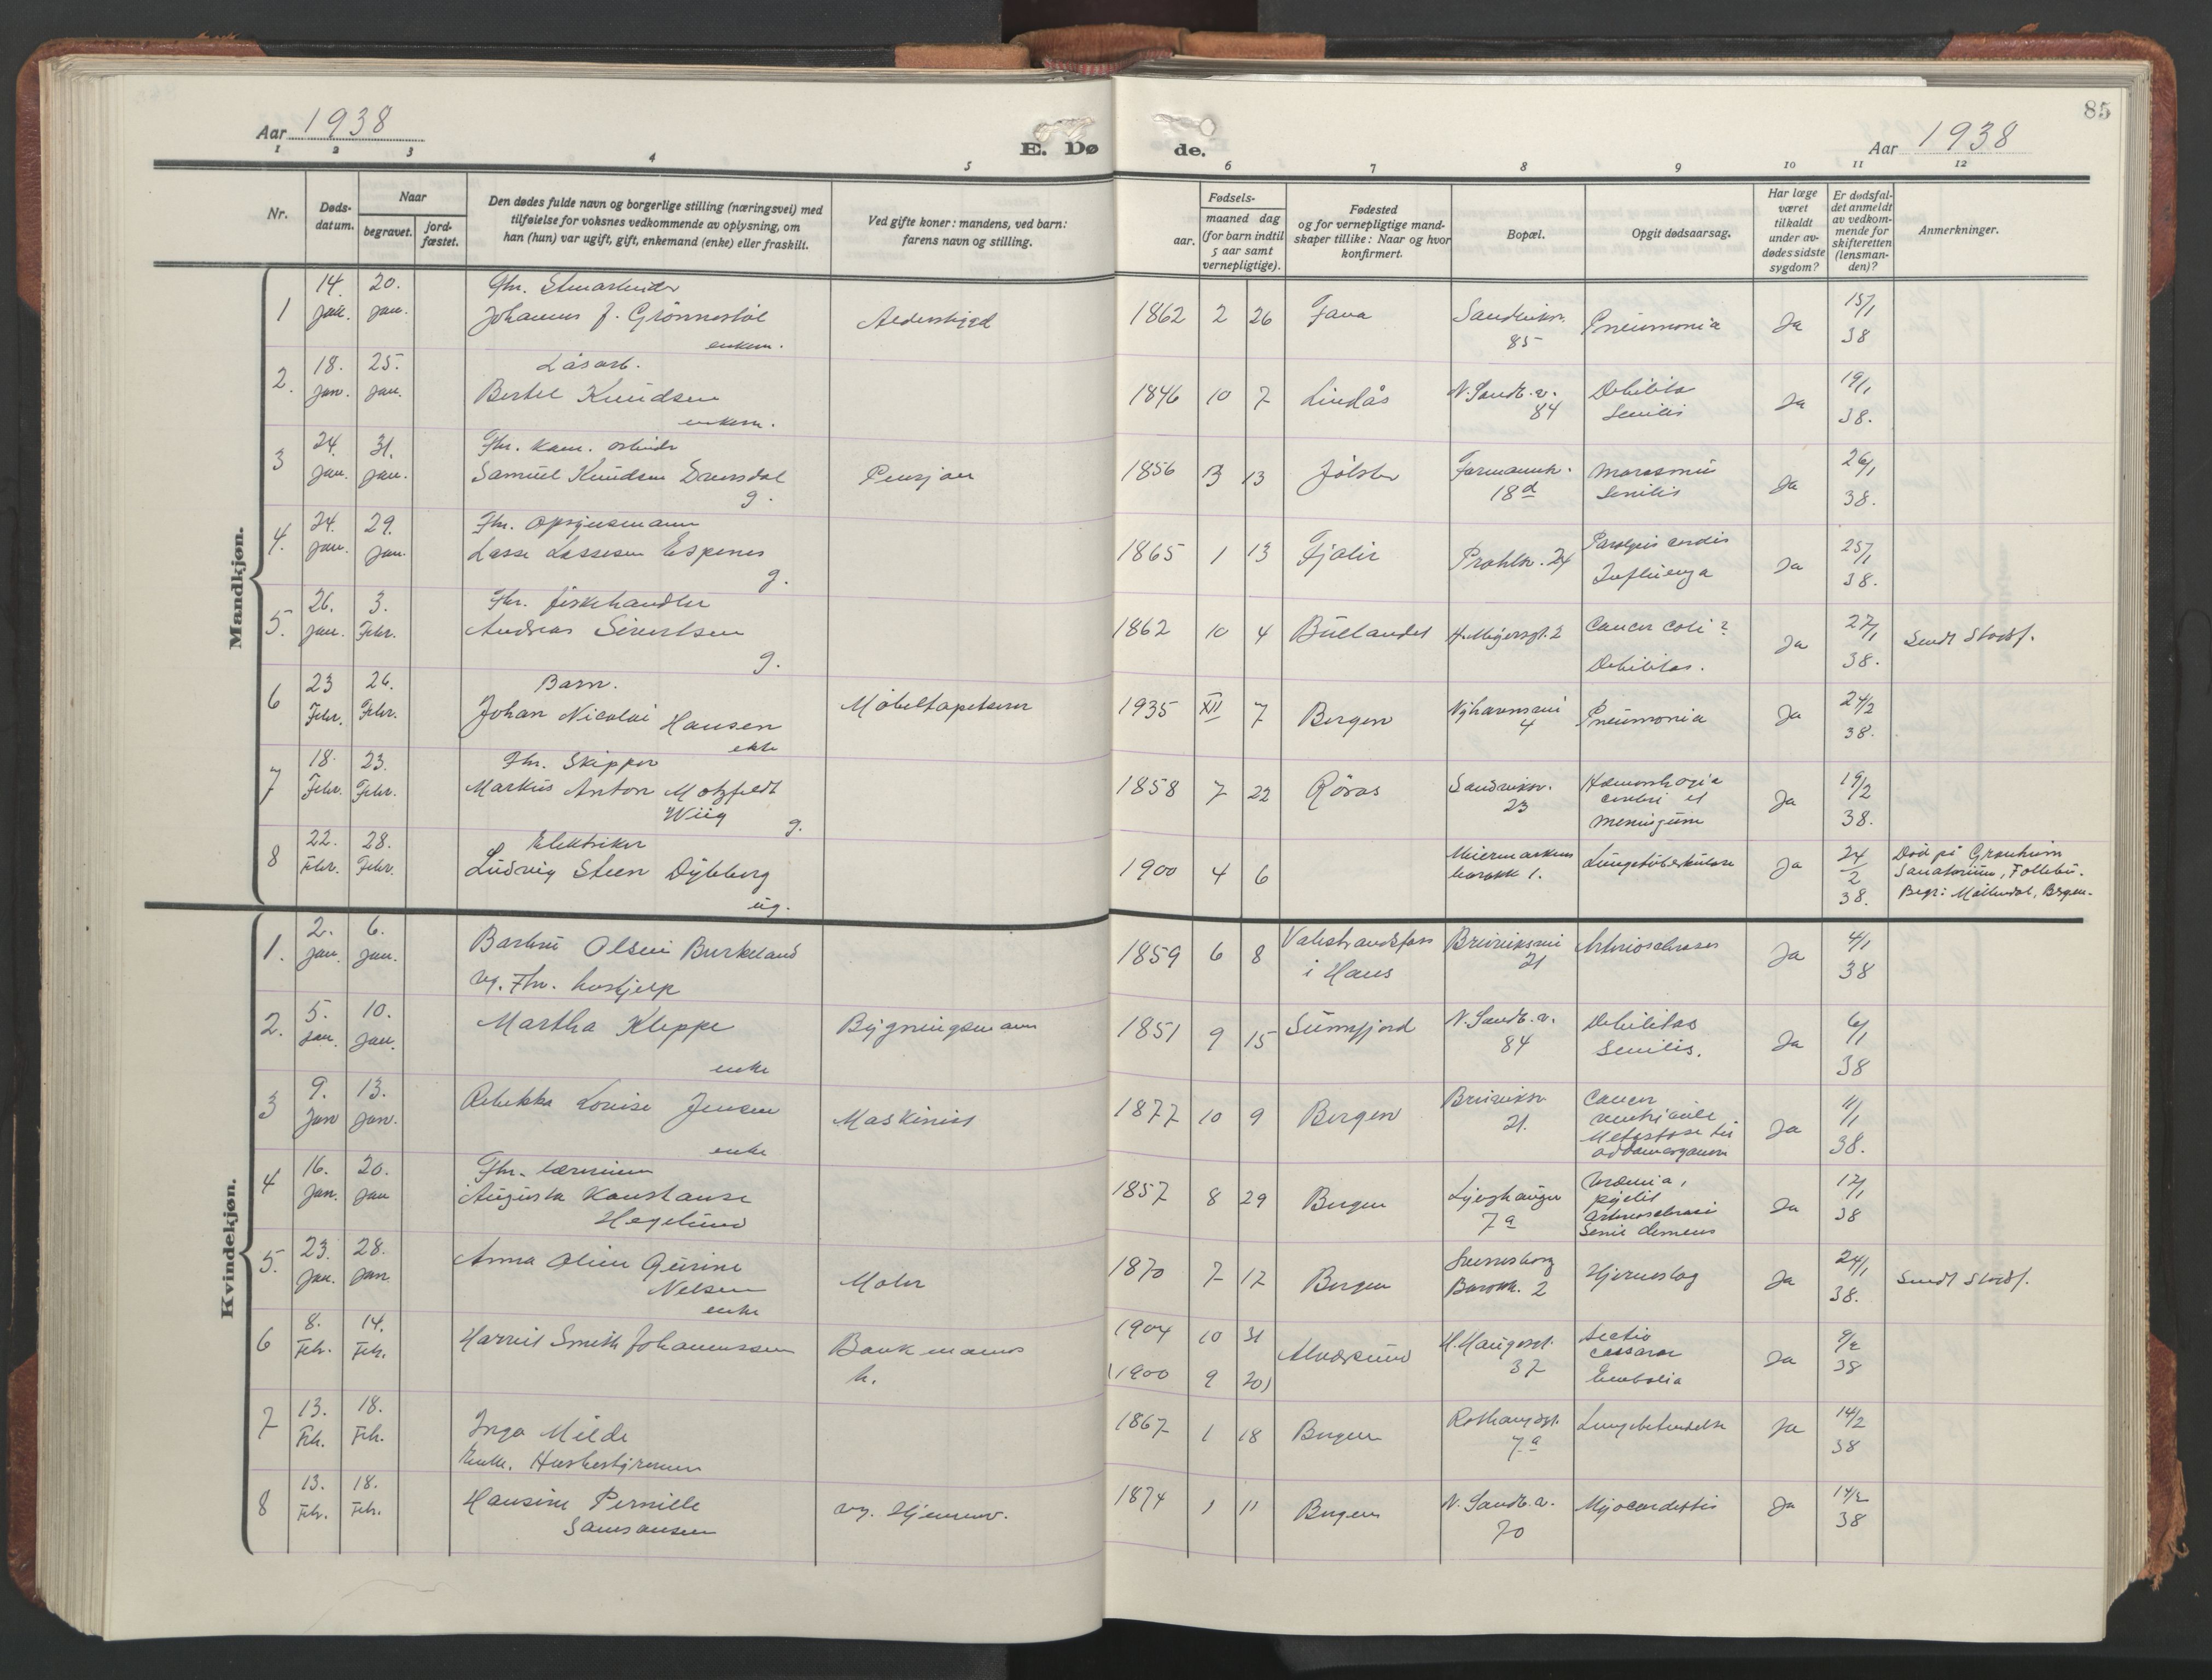 Aar 1938
E. Dø
de.
85
Aar 1938
1 2 3 4 5 6 7 8 9 10 11 12
Nr.
Døds-
datum.
Naar
begravet.
jord-
fæstet.
Den dødes fulde navn og borgerlige stilling (næringsvei) med
tilføielse for voksnes vedkommende av oplysning, om
han (hun) var ugift, gift, enkemand (enke) eller fraskilt.
Ved gifte koner: mandens, ved barn:
farens navn og stilling.
Fødsels-
aar.
maaned dag
(for barn indtil
5 aar samt
vernepligtige).
Fødested
og for vernepligtige mand-
skaper tillike: Naar og hvor
konfirmert.
Bopæl.
Opgit dødsaarsag.
Har læge
været
tilkaldt
under av-
dødes sidste
sygdom?
Er dødsfal-
det anmeldt
av vedkom-
mende for
skifteretten
(lensman-
den)?
Anmerkninger.
Mandkjøn.
1 14. Jan. 20. Jan.
Fhv. Stenarbeider
Johannes J. Grönnestöl
enkem.
1862 2 26 Fana Sandviksv. 85 Pneumonia Ja 15/1 38
2. 18. Jan. 25. Jan.
Låsarb.
Bertel Knudsen
enkem.
1846 10 7 Lindås N. Sandv. v. 84 Debilitas Senilis Ja 19/1 38.
3 24. Jan. 31. Jan.
Fhv. kom. arbeider
Samuel Knudsen
g.
Pensjon
1856 3 13 Jölster 18d Marasmus Senilis Ja 26/1 38.
4. 24. Jan. 29. Jan.
Fhv. Opsynsmann
Lasse Lassesen Espenes
g.
1865 1 13 Fjaler Prahlsv. 24 Paralysis cordis
Influenza Ja 25/1 38.
5. 26. Jan. 3. Febr.
Fhv. fiskehandler
Andreas Sivertsen
g.
1862 10 4 Buelandet H. Meyersgt. 2 Cancer coli?
Debilitas. Ja 27/1 38. Sendt Stadsf.
6 23 Febr. 26. Febr.
Barn.
Johan Nicolai Hansen
ekte
Möbeltapetserer
1935 XII 7 Bergen Nyhavnsvei 4 Pneumonia Ja 24/2 38.
7 18. Febr. 23. Febr.
Fhv. Skipper
Markus Anton Motzfeldt
Wiig g.
1858 7 22 Röros Sandviksv. 23 Hæmorrhagia
cerebri et
meningium Ja 19/2 38.
8 22. Febr. 28. Febr.
Elektriker
Ludvig Steen Dybberg
ug.
1900 4 6 Meiermarkens
barakk 1. Lungetuberkulose Ja 24/2 38. Död på Granheim
Sanatorium, Follebu.
Begr: Møllendal, Bergen.
Kvindekjøn.
1. 2. Jan. 6. Jan.
Olsen Burkeland
ug. Fhv. hushjelp
1859 6 8 Valestrandsfoss
i Haus Breiviksvei 21 Arteriosclerose Ja 4/1 38
2. 5. Jan. 10. Jan.
Martha Kleppe
enke
Bygningsmann
1851 9 15 Sunnfjord N. Sandv. v. 84 Debilitas
Senilis. Ja 6/1 38
3 9. Jan 13. Jan.
Rebekka Louise Jensen
enke
Maskinist
1877 10 9 Bergen Breiviksv. 21. Cancer
ventriculi
Metastase til
Ja 11/1 38.
4 16. Jan. 20. Jan
Fhv. lærerinne
Augusta Konstanse
Hegelund
1857 8 29 Bergen 7a Uræmia,
pyelit
Arteriosclerose
Senil demens Ja 17/1 38
5. 23. Jan. 28. Jan.
Anna Oline Gurine
Nelsen
enke
Maler
1870 7 17 Bergen
Barakk. 2 Hjerneslag Ja 24/1 38. Sendt Stadsf.
6 8. Feb. 14. Feb.
Harriet Smith Johannessen
Bankmanns
h.
1904 10 31
(1900 9 20)
Alversund H. Haugesgt. 37 Sectio
cæsarea
Embolia Ja 9/2 38
7 13. Feb. 18. Feb.
Inga Milde
Husbestyrerinne
1867 1 18 Bergen 7a Lungebetendelse Ja 14/2 38
8 13. Feb. 18. Feb.
Hansine Pernille
Samsonsen
ug. Hjemmev.
1874 1 11 Bergen N. Sandv. v. 70 Myocarditis Ja 14/2 38